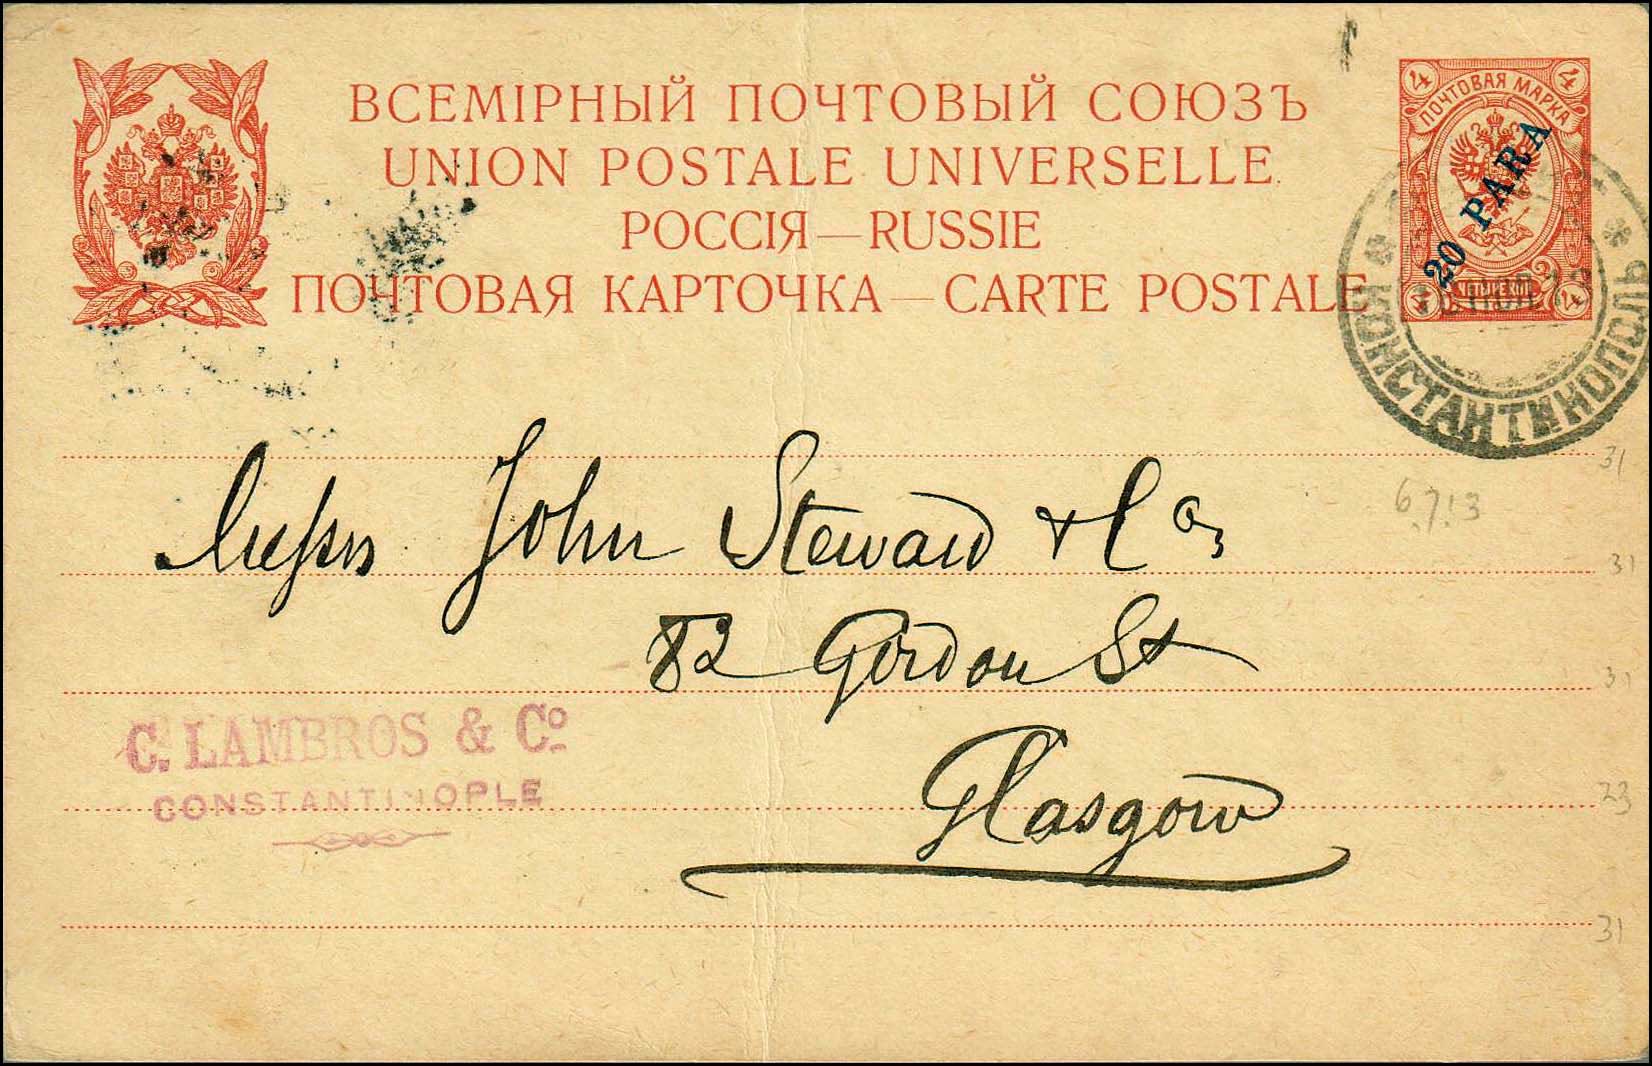 ВСЕМІРНЫЙ ПОЧТОВЫЙ СОЮЗЪ
UNION POSTALE UNIVERSELLE
РОССІЯ — RUSSIE
ПОЧТОВАЯ КАРТОЧКА — CARTE POSTALE
4 4
ПОЧТОВАЯ МАРКА
20 PARA
ЧЕТЫРЕ КОП.
4 4
КОНСТАНТИНОПОЛЬ
31
6.7.13
Messrs John Steward & Co,
31
82 Gordon St
31
C. LAMBROS & Co
CONSTANTINOPLE
Glasgow
23
31